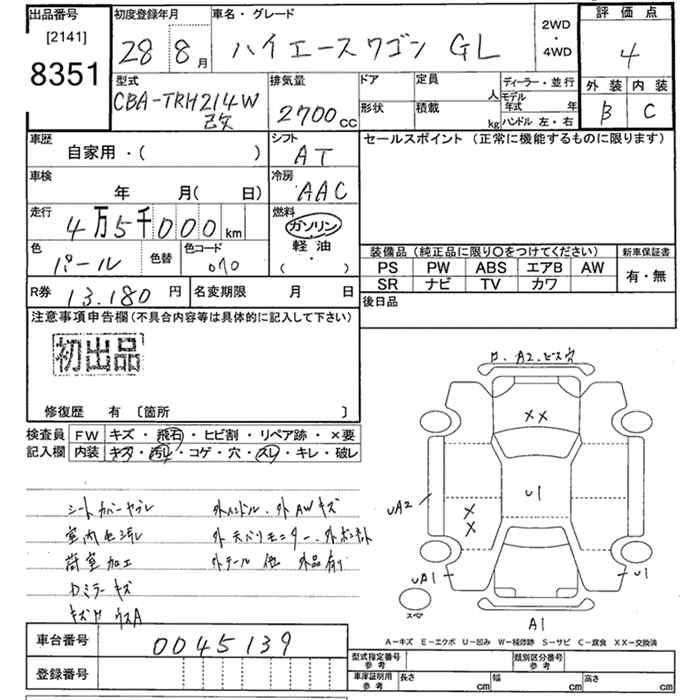 出品番号 初度登録年月 車名・グレード 2WD・4WD 評価点
[2141] 8351 28 8月 ハイエースワゴン GL 4
型式 排気量 ドア 定員 人 ディーラー・並行 外装 内装
CBA-TRH214W改 2700cc 形状 積載 kg モデル年式 年 ハンドル 左・右 B C
車歴 シフト セールスポイント (正常に機能するものに限ります)
自家用・( ) AT
車検 年 月( 日) 冷房 AAC
走行 4万5千000km 燃料 ガソリン
色 パール 色替 色コード 070 軽油・( )
装備品(純正品に限り〇をつけてください) 新車保証書
PS PW ABS エアB AW 有・無
SR ナビ TV カワ
R券 13.180円 名変期限 月 日 後日品
注意事項申告欄(不具合内容等は具体的に記入して下さい)
初出品
修復歴 有 [箇所 ]
検査員記入欄 FW キズ・飛石・ヒビ割・リペア跡・×要
内装 キズ・汚レ・コゲ・穴・スレ・キレ・破レ
シートカバーヤブレ 外ハンドル、外AWキズ
室内ヨゴレ
荷室加工 外テール他 外品有り
キズ
A2、ビス穴
XX
U1
XX
UA2
UA1
U1
スペア
A1
A-キズ E-エクボ U-凹み W-補修跡 S-サビ C-腐食 XX-交換済
車台番号 0045139
登録番号
型式指定番号 参考 類別区分番号 参考
車庫証明用 参考 長さ cm 幅 cm 高さ cm